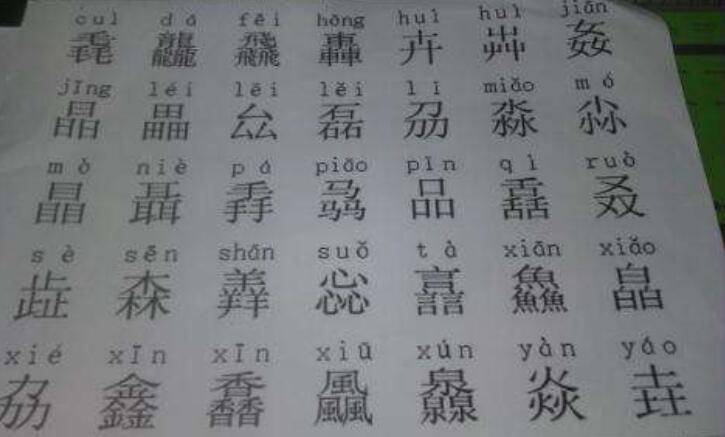 cuì dá fēi hōng huì huì jiān
毳 龘 飝 轟 卉 芔 姦
jīng léi lěi lěi lí miǎo mó
晶 畾 厽 磊 刕 淼 尛
mò niè pá piāo pǐn qì ruò
瞐 聶 掱 骉 品 舙 叒
sè sēn shān suǒ tà xiān xiǎo
歮 森 羴 惢 譶 鱻 皛
xié xīn xīn xiū xún yàn yáo
劦 鑫 馫 飍 灥 焱 垚